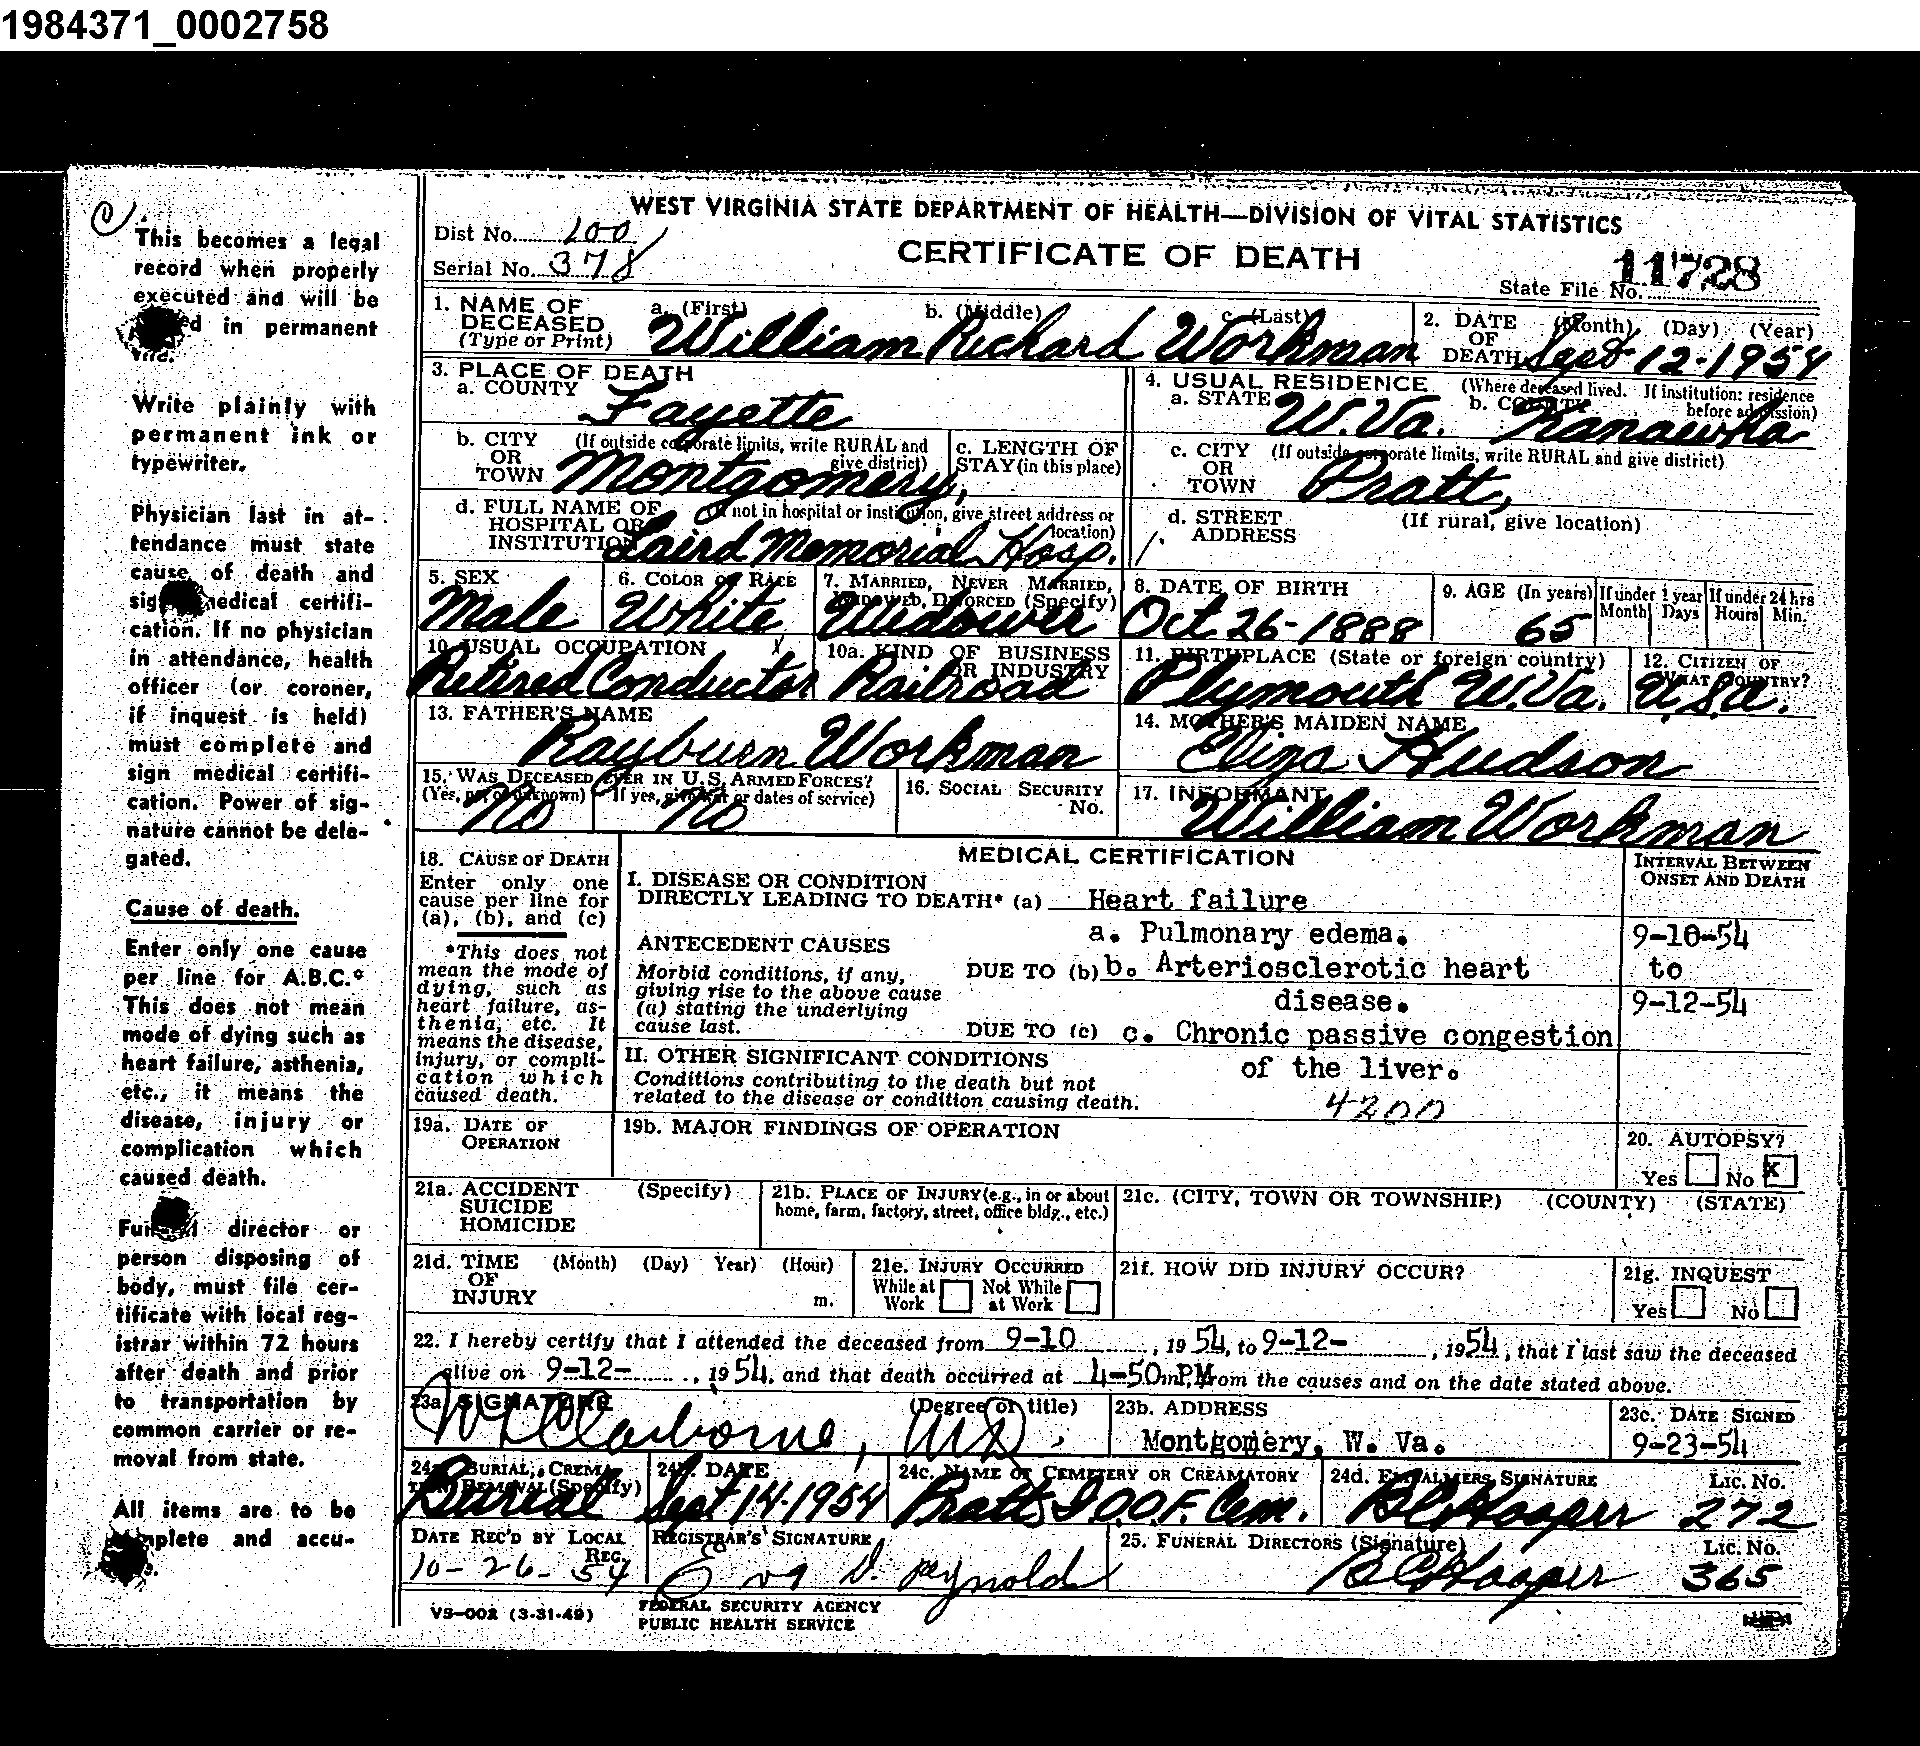 1984371_0002758
This becomes a legal
record when properly
executed and will be
in permanent
file.
Write plainly with
permanent ink or
typewriter.
Physician last in at-
tendance must state
cause of death and
sign medical certifi-
cation. If no physician
in attendance, health
officer (or coroner,
if inquest is held)
must complete and
sign medical certifi-
cation. Power of sig-
nature cannot be dele-
gated.
Cause of death.
Enter only one cause
per line for A.B.C.*
This does not mean
mode of dying such as
heart failure, asthenia,
etc., it means the
disease, injury or
complication which
caused death.
Funeral director or
person disposing of
body, must file cer-
tificate with local reg-
istrar within 72 hours
after death and prior
to transportation by
common carrier or re-
moval from state.
All items are to be
complete and accu-
WEST VIRGINIA STATE DEPARTMENT OF HEALTH—DIVISION OF VITAL STATISTICS
Dist No. 100
CERTIFICATE OF DEATH
Serial No. 378
State File No. 11728
1. NAME OF DECEASED (Type or Print) a. (First) b. (Middle) c. (Last)
William Richard Workman
2. DATE OF DEATH (Month) (Day) (Year)
Sept 12-1954
3. PLACE OF DEATH
a. COUNTY Fayette
4. USUAL RESIDENCE (Where deceased lived. If institution: residence before admission)
a. STATE W.Va. b. COUNTY Kanawha
b. CITY OR TOWN (If outside corporate limits, write RURAL and give district)
Montgomery,
c. LENGTH OF STAY (in this place)
c. CITY OR TOWN (If outside corporate limits, write RURAL and give district)
Pratt,
d. FULL NAME OF HOSPITAL OR INSTITUTION (If not in hospital or institution, give street address or location)
Laird Memorial Hosp.
d. STREET ADDRESS (If rural, give location)
5. SEX
Male
6. COLOR OR RACE
White
7. MARRIED, NEVER MARRIED, WIDOWED, DIVORCED (Specify)
Widower
8. DATE OF BIRTH
Oct 26-1888
9. AGE (In years)
65
If under 1 year
Month Days
If under 24 hrs
Hours Min.
10. USUAL OCCUPATION
Retired Conductor
10a. KIND OF BUSINESS OR INDUSTRY
Railroad
11. BIRTHPLACE (State or foreign country)
Plymouth W.Va.
12. CITIZEN OF WHAT COUNTRY?
U.S.A.
13. FATHER'S NAME
Rayburn Workman
14. MOTHER'S MAIDEN NAME
Eliza Hudson
15. WAS DECEASED EVER IN U.S. ARMED FORCES?
(Yes, no, or unknown) (If yes, give war or dates of service)
No No
16. SOCIAL SECURITY No.
17. INFORMANT
William Workman
18. CAUSE OF DEATH
Enter only one
cause per line for
(a), (b), and (c)
*This does not
mean the mode of
dying, such as
heart failure, as-
thenia, etc. It
means the disease,
injury, or compli-
cation which
caused death.
MEDICAL CERTIFICATION
INTERVAL BETWEEN
ONSET AND DEATH
I. DISEASE OR CONDITION
DIRECTLY LEADING TO DEATH* (a) Heart failure
a. Pulmonary edema.
9-10-54
ANTECEDENT CAUSES
Morbid conditions, if any,
giving rise to the above cause
(a) stating the underlying
cause last.
DUE TO (b) b. Arteriosclerotic heart
to
disease.
9-12-54
DUE TO (c) c. Chronic passive congestion
of the liver.
II. OTHER SIGNIFICANT CONDITIONS
Conditions contributing to the death but not
related to the disease or condition causing death.
4200
19a. DATE OF OPERATION
19b. MAJOR FINDINGS OF OPERATION
20. AUTOPSY?
Yes No X
21a. ACCIDENT SUICIDE HOMICIDE (Specify)
21b. PLACE OF INJURY (e.g., in or about
home, farm, factory, street, office bldg., etc.)
21c. (CITY, TOWN OR TOWNSHIP) (COUNTY) (STATE)
21d. TIME OF INJURY (Month) (Day) Year) (Hour) m.
21e. INJURY OCCURRED
While at Work Not While at Work
21f. HOW DID INJURY OCCUR?
21g. INQUEST
Yes No
22. I hereby certify that I attended the deceased from 9-10, 1954, to 9-12-, 1954, that I last saw the deceased
alive on 9-12-, 1954, and that death occurred at 4-50m,PM from the causes and on the date stated above.
23a. SIGNATURE (Degree or title)
Claiborne, MD.
23b. ADDRESS
Montgomery, W. Va.
23c. DATE SIGNED
9-23-54
24a. BURIAL, CREMATION, REMOVAL (Specify)
Burial
24b. DATE
Sept 14-1954
24c. NAME OF CEMETERY OR CREAMATORY
Pratt I.O.O.F. Cem.
24d. EMBALMERS SIGNATURE Lic. No.
B C Hooper 272
DATE REC'D BY LOCAL REG.
10-26-54
REGISTRAR'S SIGNATURE
Eva D. Reynolds
25. FUNERAL DIRECTORS (Signature) Lic. No.
B C Hooper 365
VS-002 (3-31-49)
FEDERAL SECURITY AGENCY
PUBLIC HEALTH SERVICE